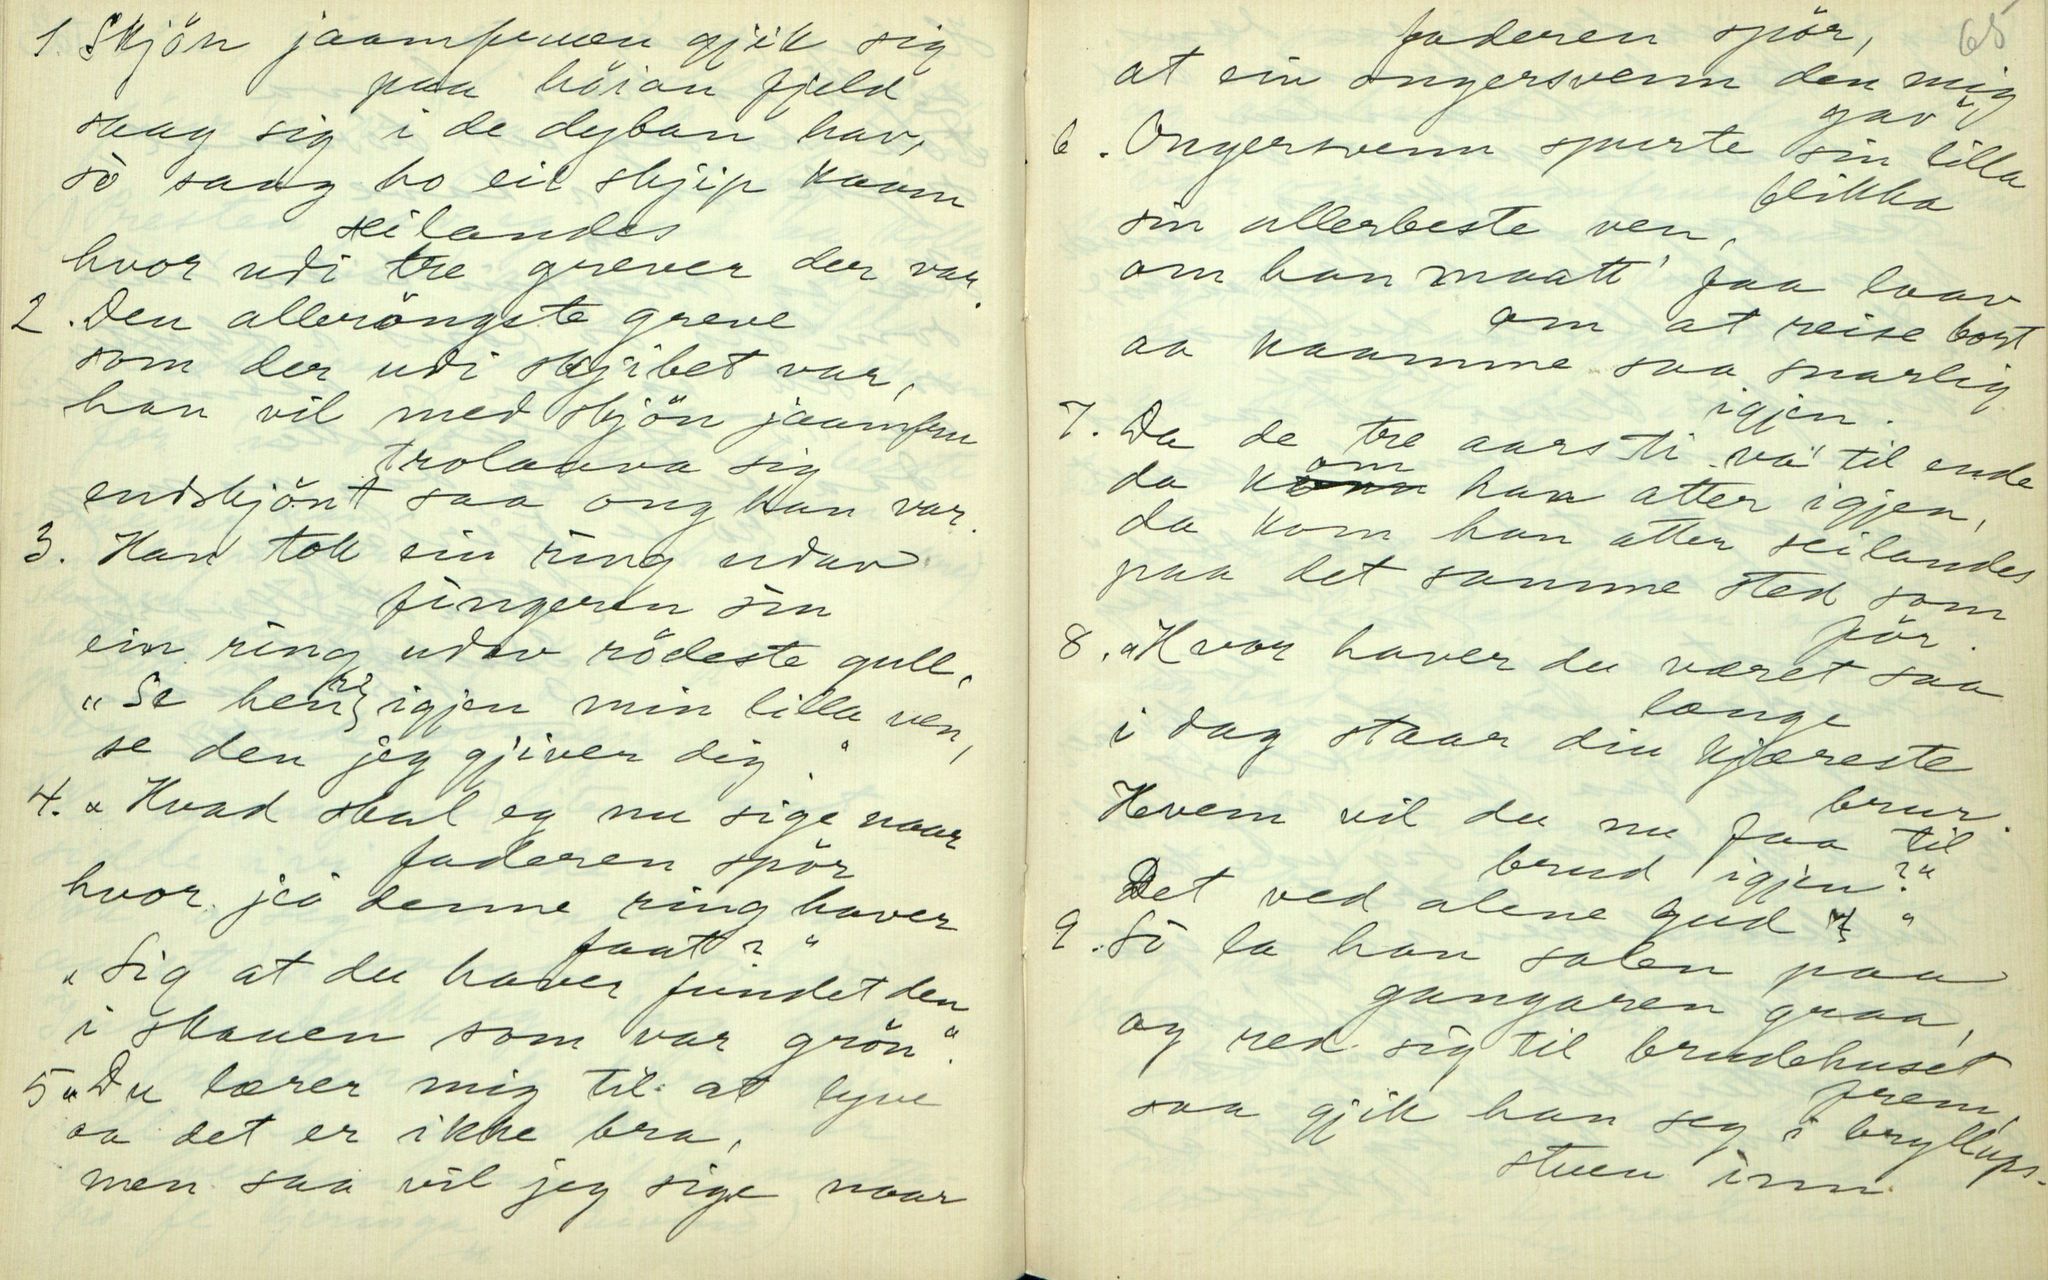 1. Skjön jaamfruen gjik sig
paa höian fjeld
saag sig i de dyban hav,
sò saag ho eit skjip kaam
seilandes
hvor udi tre grever der var.
2. Den allerøngste greve
som der udi skjibet var,
han vil med skjön jaamfru
trolaava sig
endskjönt saa ong han var.
3. Han tok ein ring udav
fingeren sin
ein ring udav rödeste gull,
"Se hen igjen min lilla ven,
se den jeg gjiver dig."
4. "Hvad skal eg nu sige naar
faderen spör
hvor jei denne ring haver
faat?"
"Sig at du haver fundet den
i skauen som var grön".
5 "Du lærer mig til at lyve
aa det er ikke bra,
men saa vil jeg sige naar
65
faderen spör,
at ein ongersvenn den mig
gav",
6. Ongersvenn spurte sin lilla
blikka
sin allerbeste ven,
om han maatt' faa laav
om at reise bort
aa kaamme saa snarlig
igjen.
7. Da de tre aars ti va' til ende
da kom han atter igjen,
da kom han atter seilandes
paa det samme sted som
för.
8. "Hvor haver du været saa
længe
i dag staar din kjæreste
brur.
Hvem vil du nu faa til
brud igjen?"
Det ved alene gud"
9. Sò la han salen paa
gangaren graa,
og red sig til brudehuset
frem,
saa gjik han seg i bryllups-
stuen inn